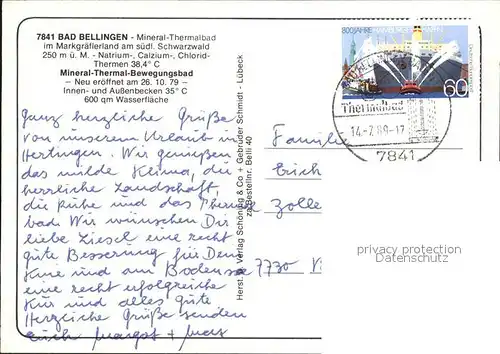 7841 BAD BELLINGEN - Mineral-Thermalbad
im Markgräflerland am südl. Schwarzwald
250 m ü. M. - Natrium-, Calzium-, Chlorid-
Thermen 38,4° C
Mineral-Thermal-Bewegungsbad
– Neu eröffnet am 26. 10. 79 –
Innen- und Außenbecken 35° C
600 qm Wasserfläche
Ganz herzliche Grüße
von unserem Urlaub in
Hertingen. Wir genießen
das milde Klima, die
herrliche Landschaft,
die Ruhe und das Thermal
bad. Wir wünschen Dir
liebe Liesel eine recht
gute Besserung für Deine
Knie und am Bodensee
eine recht erfolgreiche
Kur und alles Gute
Herzliche Grüße senden
Euch Margot + Max
Herst. u. Verlag Schöning & Co + Gebrüder Schmidt - Lübeck
zu Bestellnr. Belli 40
800 JAHRE HAMBURGER HAFEN
60
Thermalbad
14.-7.89-17
7841
Familie
Erich
Zolle
7730 Vi
privacy protection
Datenschutz